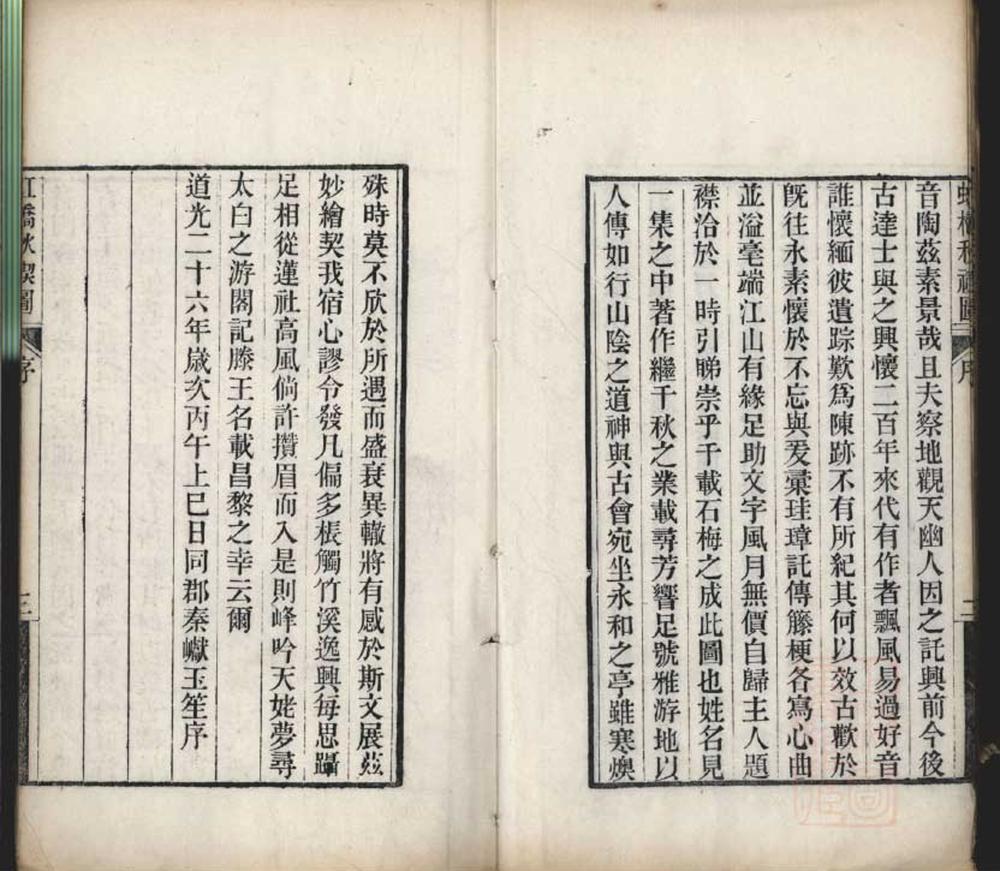 虹橋秋禊圖 序 二
音陶茲素景哉且夫察地觀天幽人因之託興前今後
古達士與之興懷二百年來代有作者飄風易過好音
誰懷緬彼遺踪歎爲陳跡不有所紀其何以效古歡於
旣往永素懷於不忘與爰彙珪璋託傳籐梗各寫心曲
並溢毫端江山有緣足助文字風月無價自歸主人題
襟洽於一時引睇崇乎千載石梅之成此圖也姓名見
一集之中著作繼千秋之業載尋芳響足號雅游地以
人傳如行山陰之道神與古會宛坐永和之亭雖寒燠
殊時莫不欣於所遇而盛衰異轍將有感於斯文展茲
妙繪契我宿心謬令發凡偏多棖觸竹溪逸興每思躡
足相從蓮社高風倘許攢眉而入是則峰吟天姥夢尋
太白之游閣記滕王名載昌黎之幸云爾
道光二十六年歲次丙午上巳日同郡秦巘玉笙序
虹橋秋禊圖 序 三